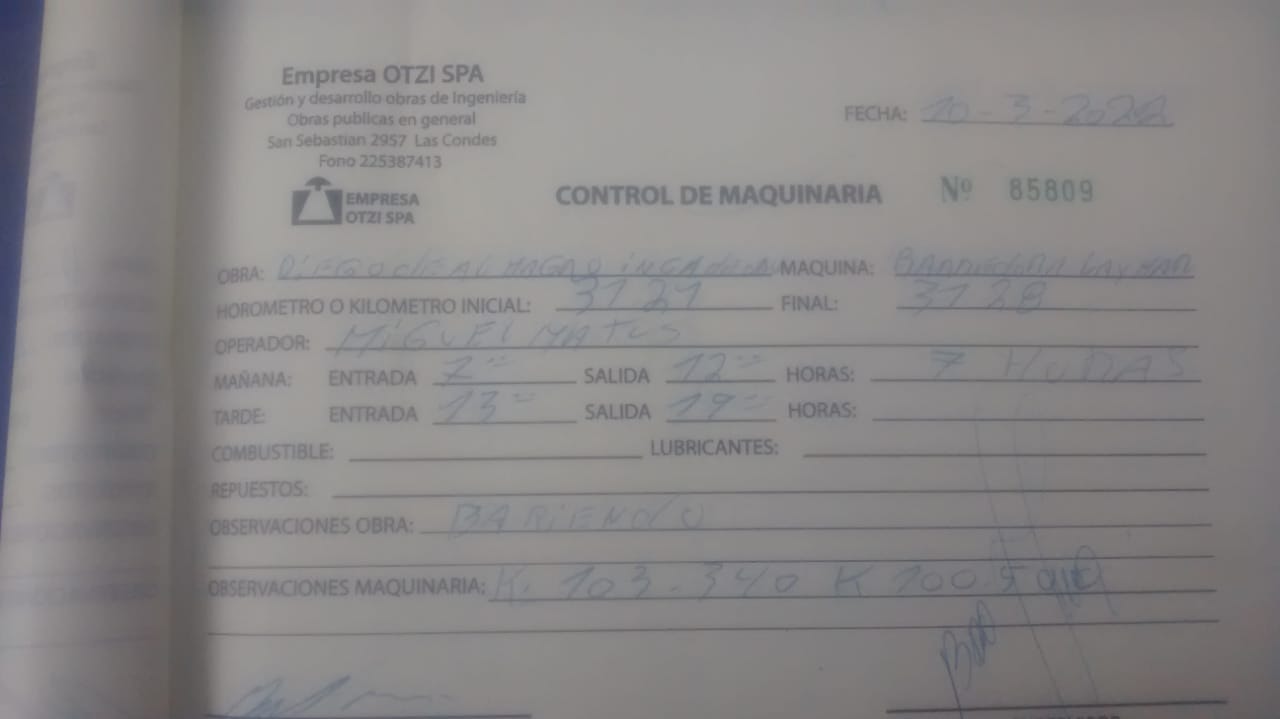 Empresa OTZI SPA
Gestión y desarrollo obras de Ingeniería
Obras publicas en general
San Sebastian 2957 Las Condes
Fono 225387413
FECHA: 10-3-2022
EMPRESA OTZI SPA
CONTROL DE MAQUINARIA Nº 85809
OBRA: DIEGO DE ALMAGRO MAQUINA:
HOROMETRO O KILOMETRO INICIAL: 3121 FINAL: 3128
OPERADOR: MIGUEL MATUS
MAÑANA: ENTRADA 7 SALIDA 12 HORAS: 7 HORAS
TARDE: ENTRADA 13 SALIDA 19 HORAS:
COMBUSTIBLE: LUBRICANTES:
REPUESTOS:
OBSERVACIONES OBRA: BARIENDO
OBSERVACIONES MAQUINARIA: K. 103.340 K